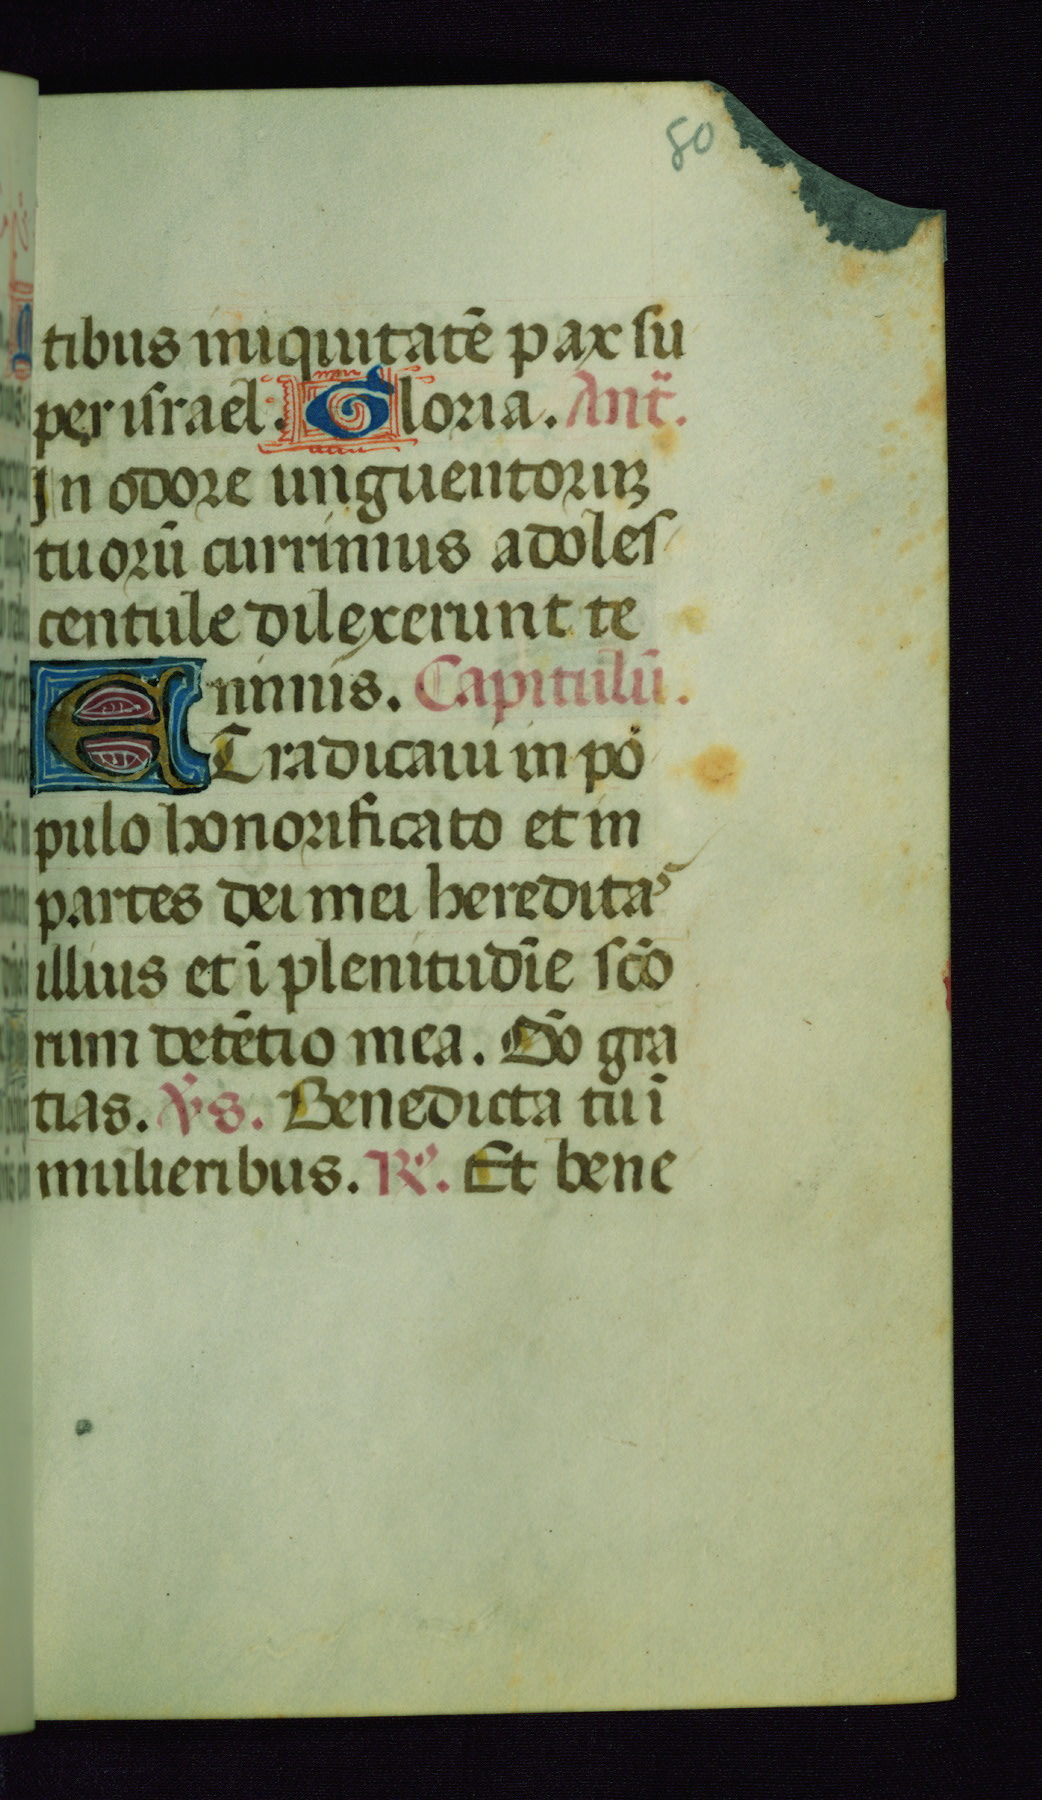 80
tibus iniquitatē pax su
per israel. Gloria. Ant̄.
In odore unguentoruꝫ
tuorū currimus adoles
centule dilexerunt te
nimis. Capitulū.
ET radicaui in po
pulo honorificato et in
partes dei mei heredita⁹
illius et ī plenitudīe scō
rum detētio mea. Dō gra
tias. V̄s. Benedicta tu ī
mulieribus. R̄. Et bene